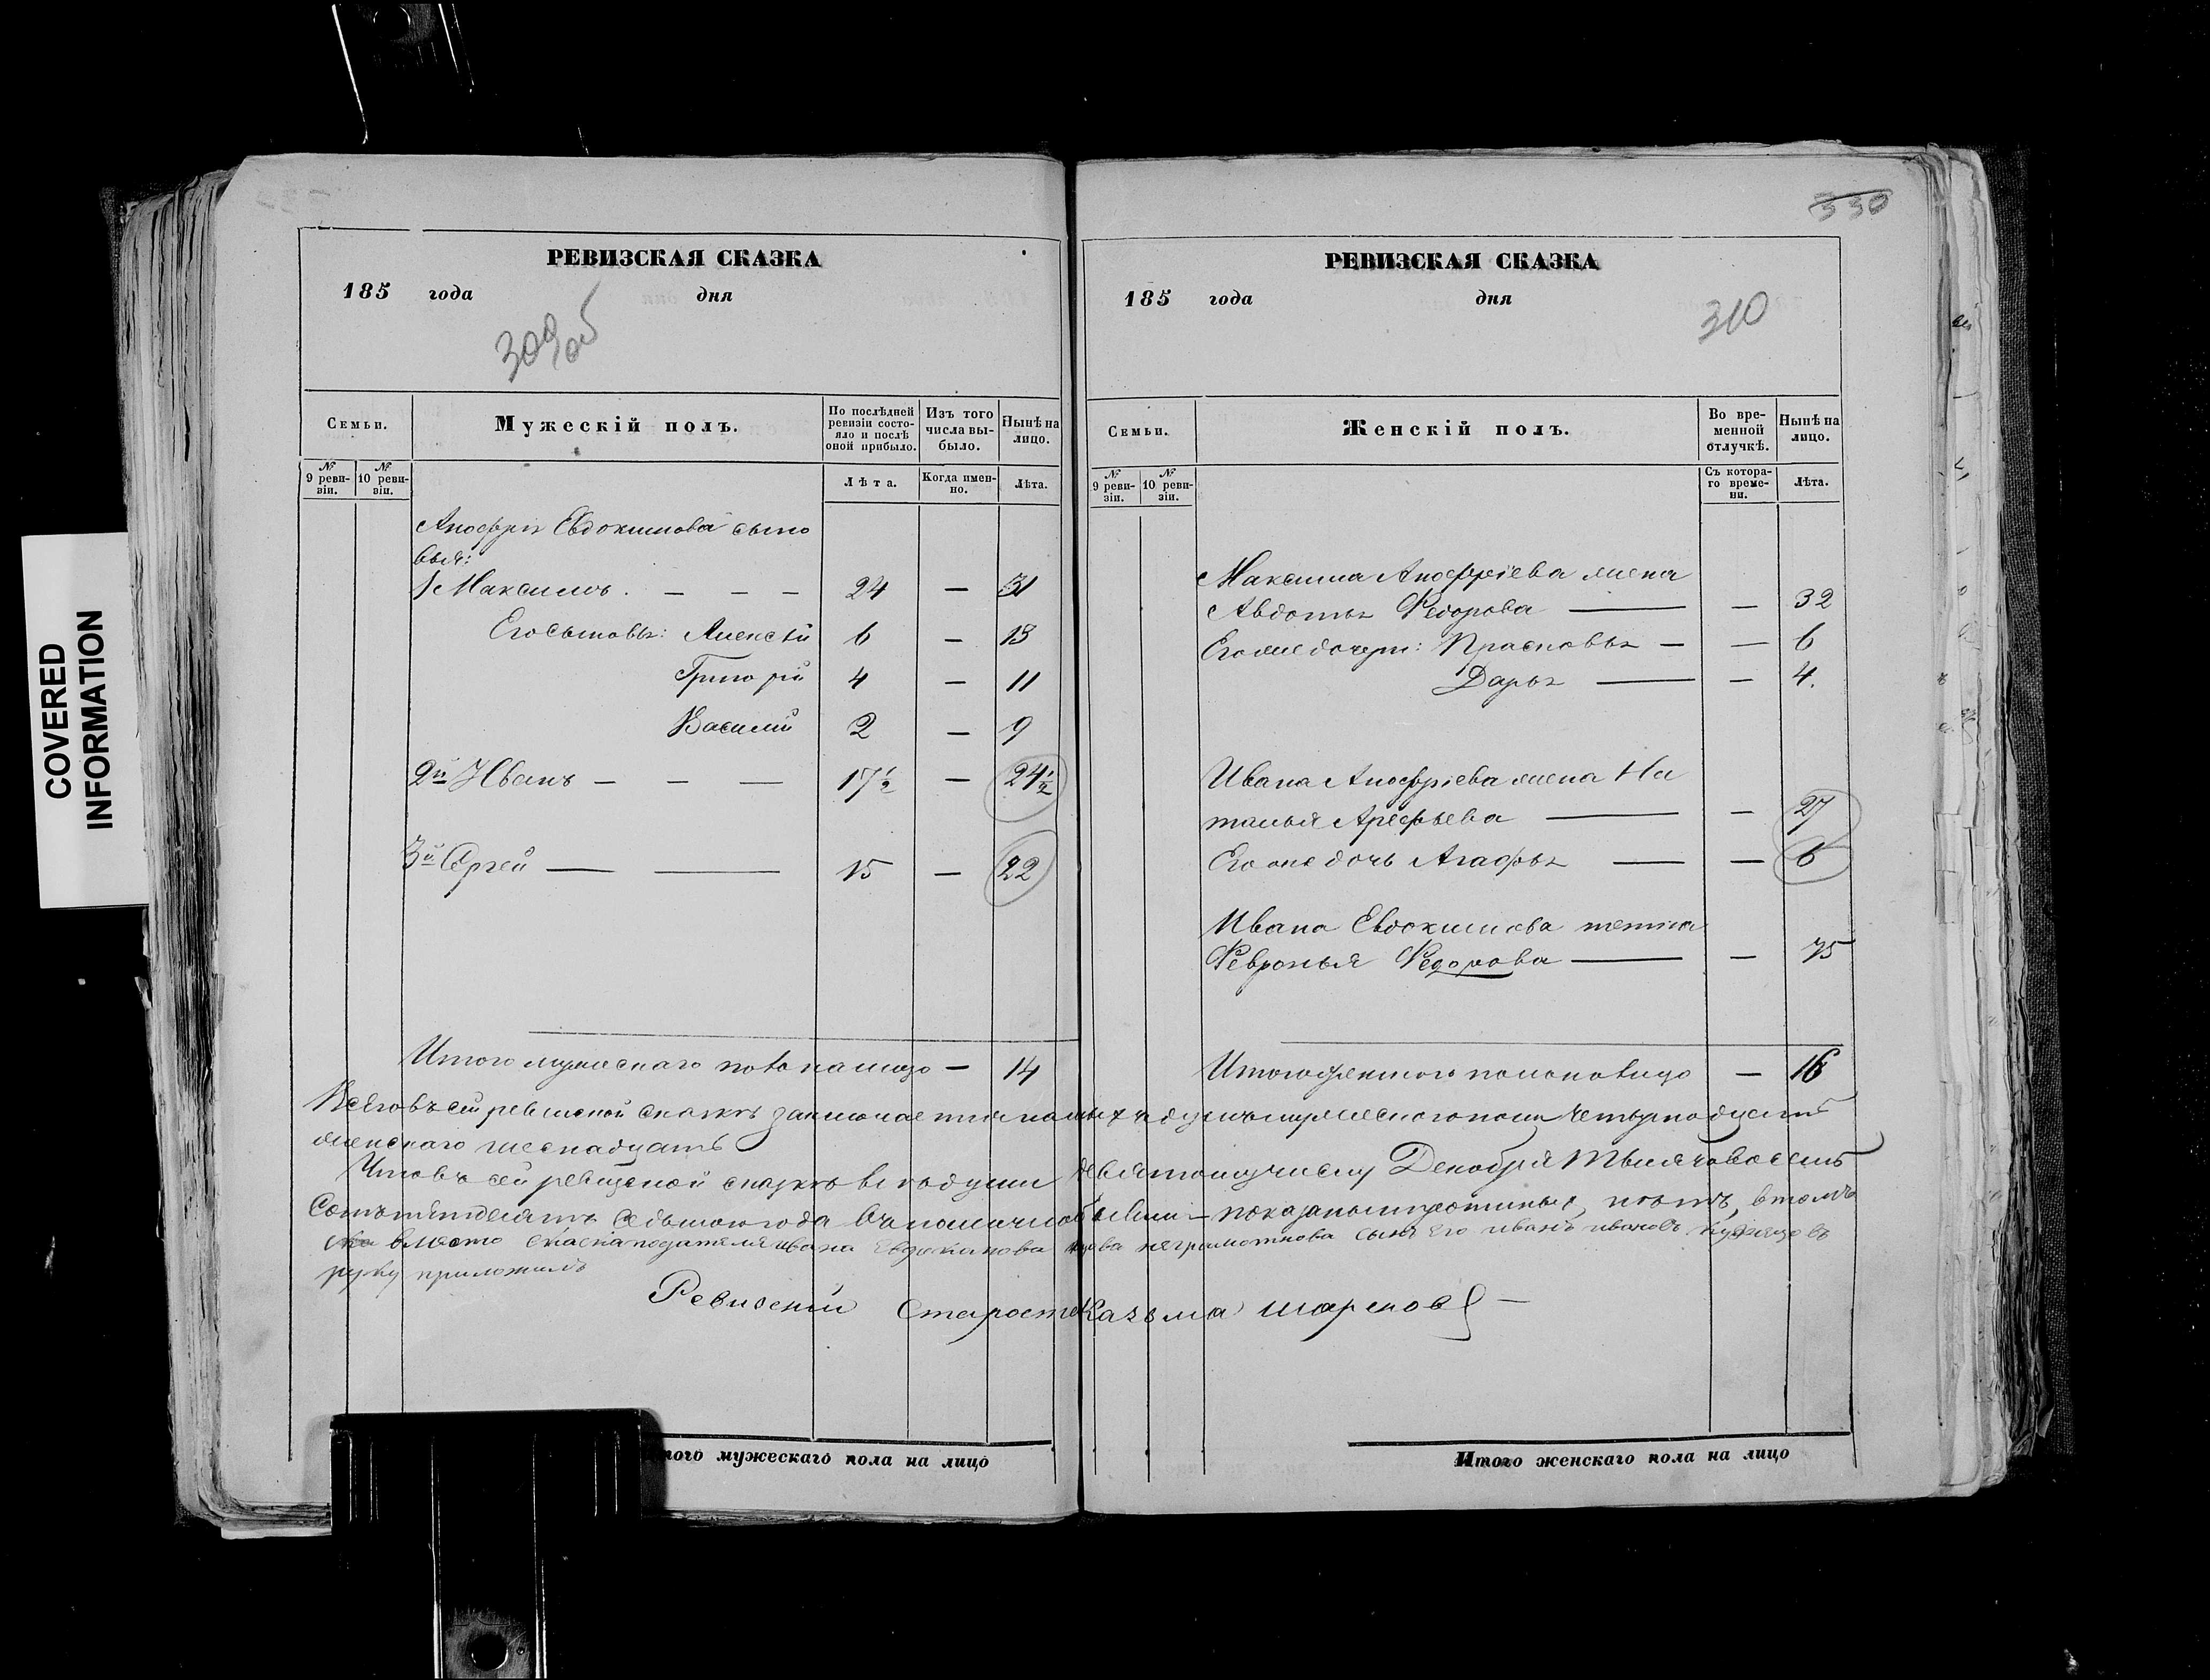 COVERED
INFORMATION
РЕВИЗСКАЯ СКАЗКА
185 года дня
309 об
Семьи.
Мужескій полъ.
По послѣдней ревизіи состояло и послѣ оной прибыло.
Изъ того числа выбыло.
Нынѣ на лицо.
№ 9 ревизіи.
№ 10 ревизіи.
Лѣта.
Когда именно.
Лѣта.
Аноффрія Евдокимова сыно
вья:
1 Максимъ. — — — 24 — 31
Его сыновья: Алексѣй 6 — 13
Григорій 4 — 11
Василій 2 — 9
2й Иванъ — — — 17½ — 24½
3й Сергей — — 15 — 22
Итого мужескаго пола на лицо — 14
330
РЕВИЗСКАЯ СКАЗКА
185 года дня
310
Семьи.
Женскій полъ.
Во временной отлучкѣ.
Нынѣ на лицо.
№ 9 ревизіи.
№ 10 ревизіи.
Съ котораго времени.
Лѣта.
Максима Аноффріева жена
Авдотья Федорова — — 32
Его же дочери: Прасковья — — 6
Дарья — — 4.
Ивана Аноффріева жена На
талья Арефьева — — 27
Его же дочь Агафья — — 6
Ивана Евдокимова тетка
Февронья Федорова — — 75
Итого женского пола на лицо — 16
Всего въ сей ревиской сказкѣ заключается наличныхъ душъ мужеского пола четырнадцать
женскаго шеснадцать
Что въ сей ревизской сказкѣ все души девятому числу Декабря тысяча восемь
сотъ пятдесятъ седьмого года въ наличности бывши показаны и протчных, нѣтъ, в томъ
вместо сказкаподателя ивана Евдокимова неграмотнова сынъ его иванъ ивановъ
руку приложилъ
Ревизскій Староста Казьма шарепов —
Итого мужескаго пола на лицо
Итого женскаго пола на лицо